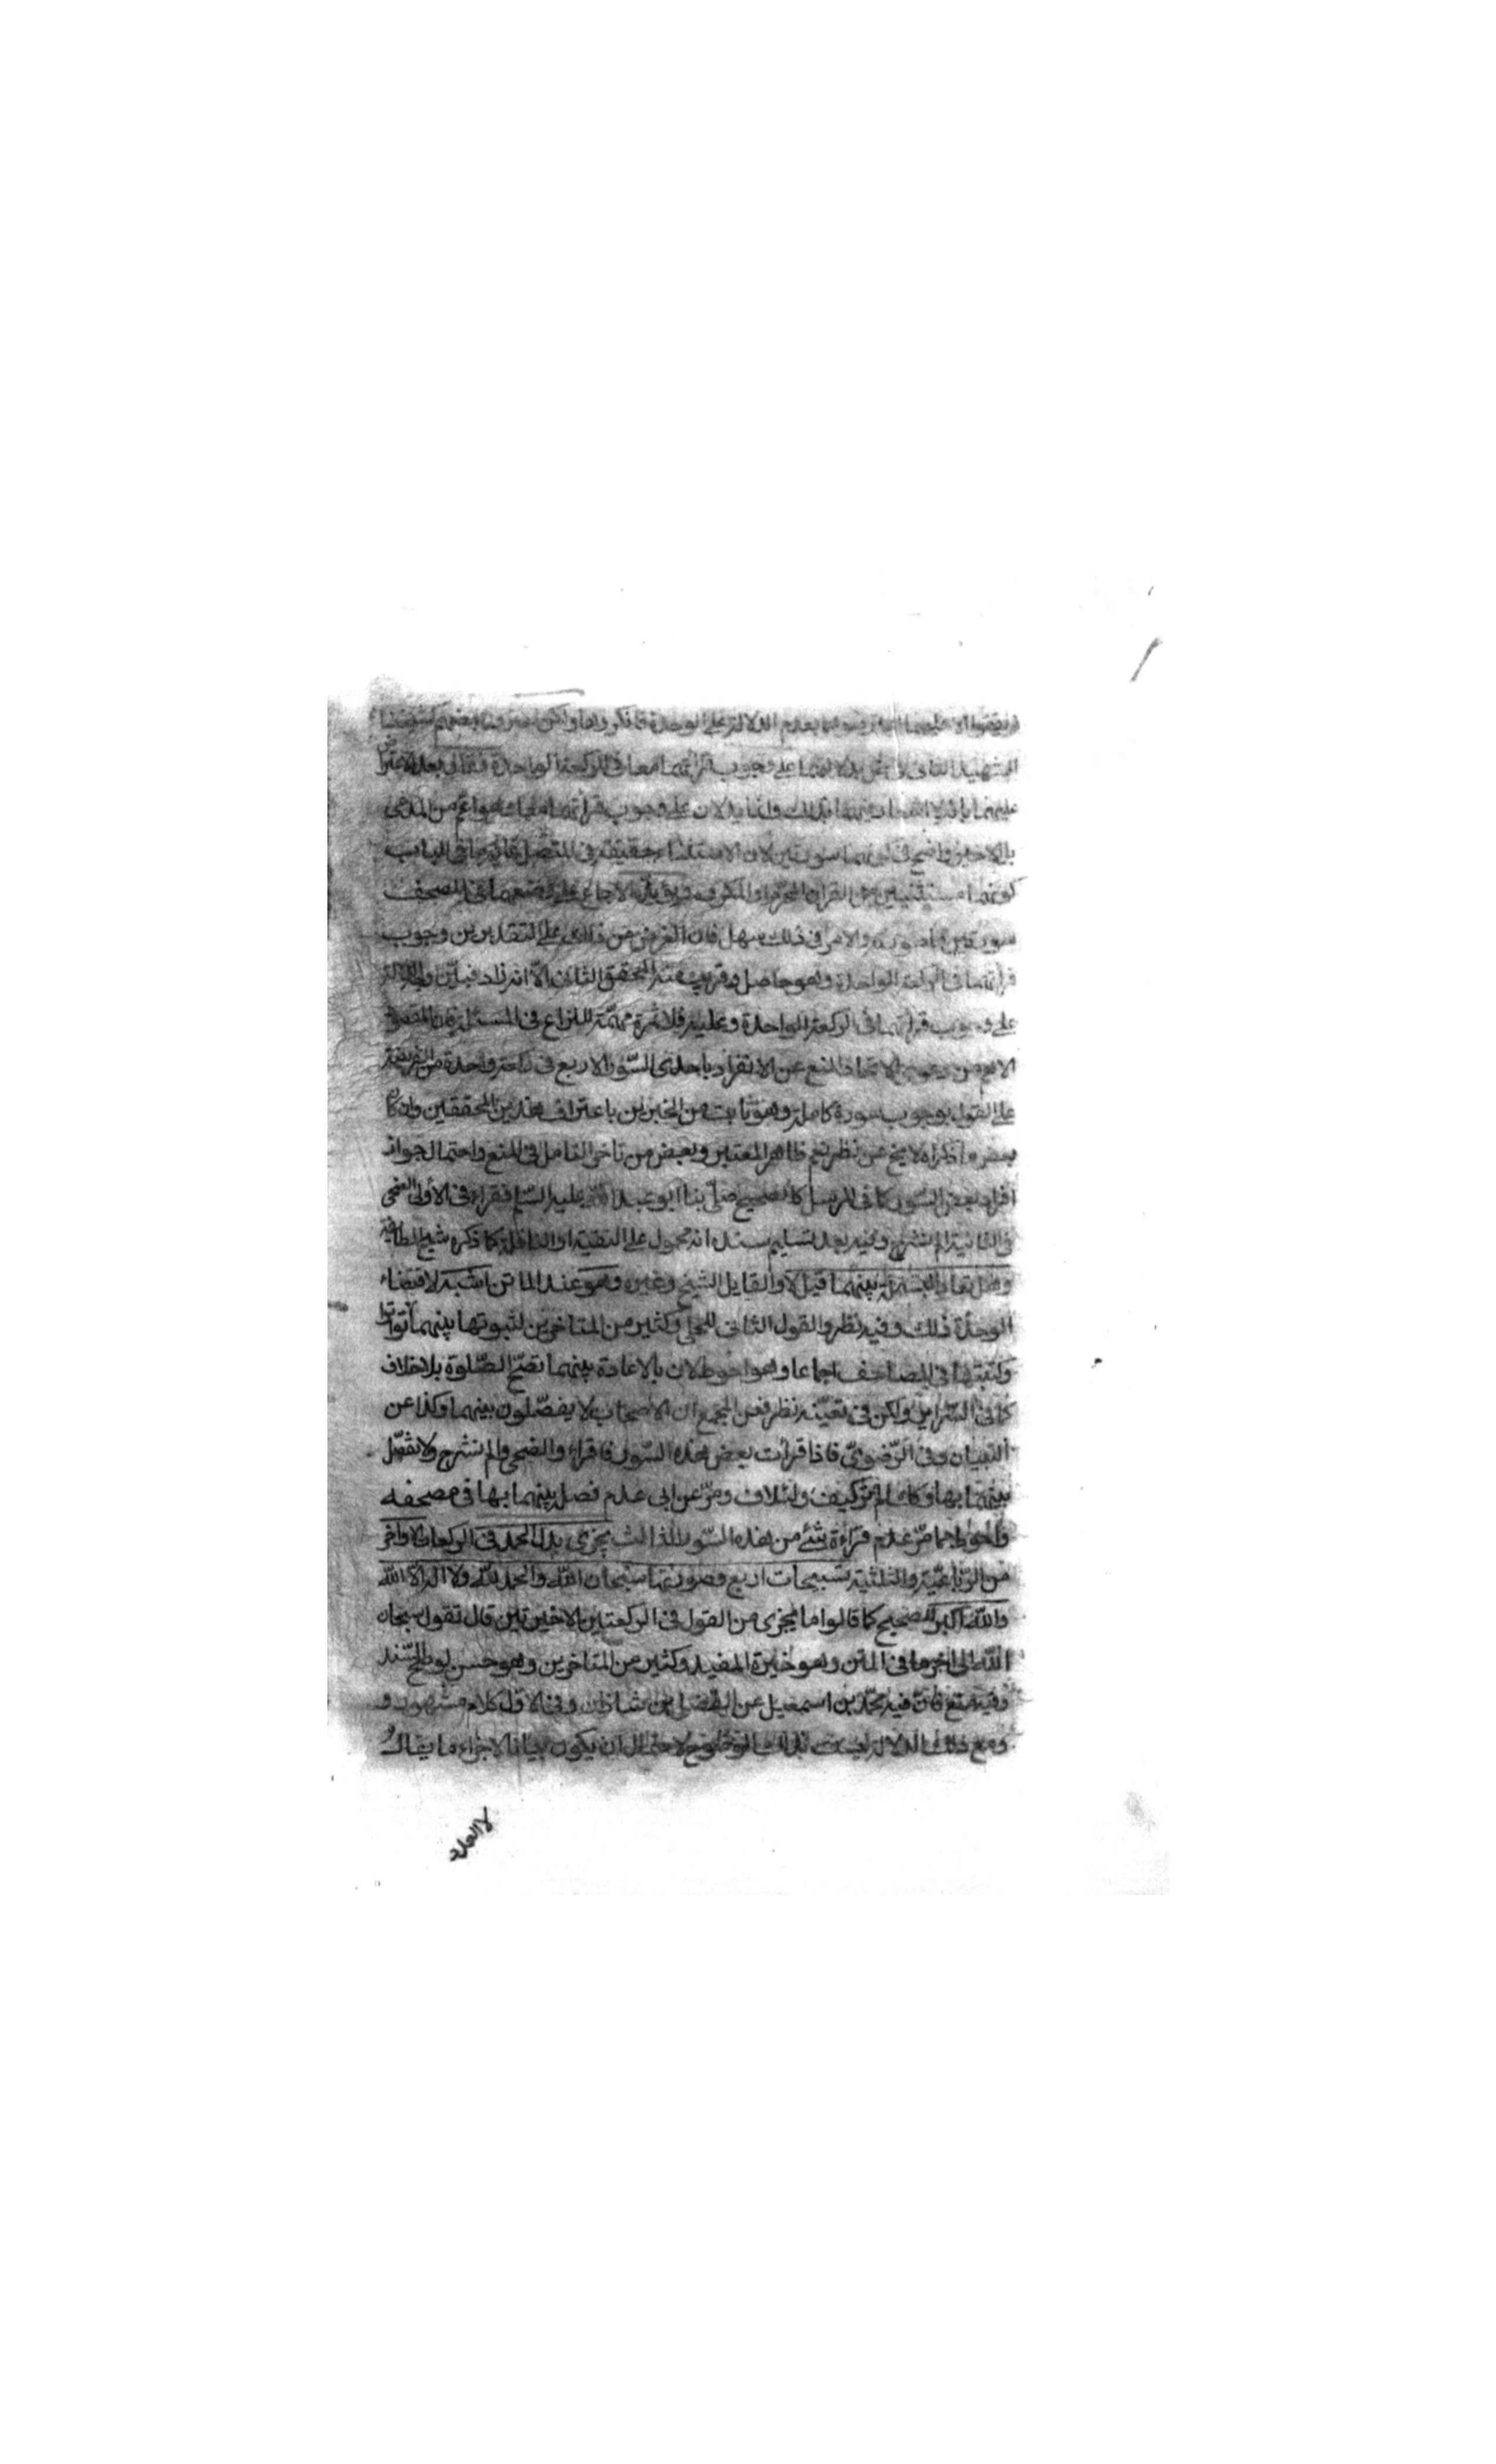 لم يقفوا الا عليهما اعترضوهما بعدم الدلالة على الوحدة فاذكروها ولكن اعترف بعضهم كشيخنا
الشهيد الثانى بدلالتهما على وجوب قرائتهما معا فى الركعة الواحدة فقال بعد الاعتراض
عليهما بانه لا اشعار فيهما بذلك وانما يدلان على وجوب قرائتهما معا وهو اعم من المدعى
بل الاخير واضح فى انهما سورتين لان الاستثناء حقيقة فى المتصل غاية ما فى الباب
كونهما مستثنيين من القران المحرم او المكروه ويؤيده الاجماع على وضعهما فى المصحف
سورتين والامر فى ذلك سهل فان الغرض من ذلك على التقديرين وجوب
قرائتهما فى الركعة الواحدة وهو حاصل وقريب منه المحقق الثانى الا انه زاد فبين وجه الدلالة
على وجوب قرائتهما فى الركعة الواحدة وعليه فلا ثمرة مهمة للنزاع فى المسئلة فان المقصود
الاهم من دعوى الاتحاد المنع عن الانفراد باحدى السور الاربع فى ركعة واحدة من الفريضة
على القول بوجوب سورة كاملة وهو ثابت من الخبرين باعتراف هذين المحققين وان كان
بعض ما ذكراه لا يخ عن نظر نعم ظاهر المعتبر وبعض من تاخر التامل فى المنع واحتمال جواز
افراد بعض السور كما فى المرسل كالصحيح صلى بنا ابو عبد الله عليه السلم فقراء فى الأولى الضحى
فى الثانية الم نشرح وفيه بعد تسليم سنده انه محمول على التقية او النافلة كما ذكره شيخ الطايفة
وهل تعاد البسملة بينهما قيل لا والقايل الشيخ وغيره وهو عند الماتن اشبه لاقتضاء
الوحدة ذلك وفيه نظر والقول الثانى للحلى وكثير من المتاخرين لثبوتها بينهما تواترا
وكتبتها فى المصاحف اجماعا وهو احوط لان بالاعادة بينهما تصح الصلوة بلا خلاف
كما فى السراير ولكن فى تعينه نظر فعن المجمع ان الاصحاب لا يفصلون بينهما وكذا عن
التبيان وفى الرضوى فاذا قرأت بعض هذه السور فاقراء والضحى والم نشرح ولا تفصل
بينهما بها وكذا الم تر كيف ولئلاف ومر عن ابى عدم فصله بينهما بها فى مصحفه
والاحوط مما مر عدم قراءة شئ من هذه السور الثالث يجزى بدل الحمد فى الركعات الاواخر
من الرباعية والثلثية تسبيحات اربع وصورتها سبحان الله والحمد لله ولا اله الا الله
والله اكبر للصحيح كما قالوا ما يجزى من القول فى الركعتين الاخيرتين قال تقول سبحان
الله الى اخر ما فى المتن وهو خيرة المفيد وكثير من المتاخرين وهو حسن لو صح السند
وفيه منع فان فيه محمد بن اسمعيل عن الفضل بن شاذان وفى الاول كلام مشهور و
ومع ذلك الدلالة ليست بذلك الوضوح لاحتمال ان يكون بيانا لاجزاء ما يقال
لا العدد